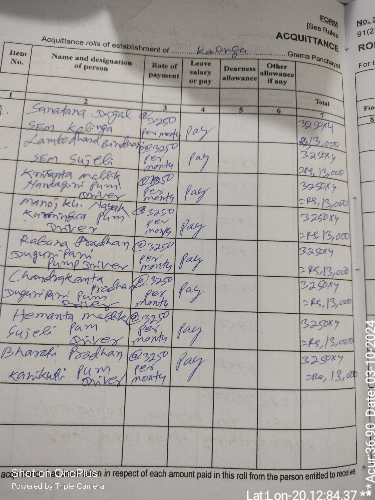 FORM
(See Rules
ACQUITTANCE
Acquittance rolls of establishment of Kalinga Grama Panchayat
Item No.
Name and designation of person
Rate of payment
Leave salary or pay
Dearness allowance
Other allowance if any
Total
1 2 3 4 5 6 7
Sanatana @3250 3250x4
SEM Kalinga per month Pay Rs,13,000
@3250 3250x4
SEM Sujeli per month Pay =Rs,13,000
Mallik @3250 3250x4
Pum Driver per month Pay =Rs,13,000
Manoj Ku. Nayak @3250 3250x4
Pum Driver per month Pay =Rs,13,000
Pradhan @3250 3250x4
Pump Driver per month Pay =Rs,13,000
Chandrakanta Pradhan @3250 3250x4
Pum Driver per month Pay =Rs,13,000
Hemanta Mallik @3250 3250x4
Sujeli Pum Driver per month Pay =Rs,13,000
Bharati Pradhan @3250 3250x4
Pum Driver per month Pay =Rs,13,000
in respect of each amount paid in this roll from the person entitled to receive
No.
91(2
RO
For t
8
Shot on OnePlus
Powered by Triple Camera
Lat:Lon-20.12:84.37
**Acur:36.90 Date: 03-10-2024